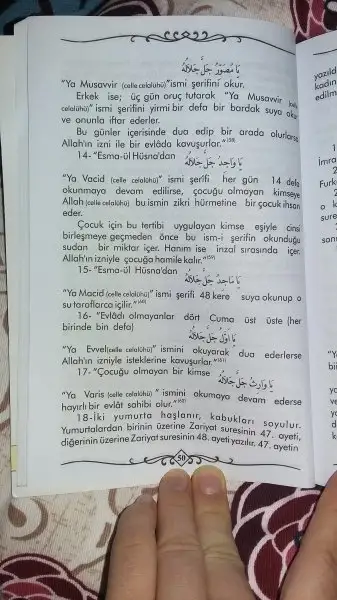 يَا مُصَوِّرُ جَلَّ جَلَالُهُ
"Ya Musavvir (celle celalühü)"ismi şerifini okur.
Erkek ise; üç gün oruç tutarak "Ya Musavvir (celle
celalühü)" ismi şerifini yirmi bir defa bir bardak suya okur
ve onunla iftar ederler.
Bu günler içerisinde dua edip bir arada olurlarsa
Allah'ın izni ile bir evlâda kavuşurlar."(58)
14- "Esma-ül Hüsna'dan يَا وَاجِدُ جَلَّ جَلَالُهُ
"Ya Vacid (celle celalühü)" ismi şerifi her gün 14 defa
okunmaya devam edilirse, çocuğu olmayan kimseye
Allah (celle celalühü) bu ismin zikri hürmetine bir çocuk ihsan
eder.
Çocuk için bu tertibi uygulayan kimse eşiyle cinsi
birleşmeye geçmeden önce bu ism-i şerifin okunduğu
sudan bir miktar içer. Hanım ise inzal sırasında içer.
Allah'ın izniyle çocuğa hamile kalır."(59)
15- "Esma-ül Hüsna'dan يَا مَاجِدُ جَلَّ جَلَالُهُ
"Ya Macid (celle celalühü)" ismi şerifi 48 kere suya okunup o
su taraflarca içilir."(60)
16- "Evlâdı olmayanlar dört Cuma üst üste (her
birinde bin defa) يَا اَوَّلُ جَلَّ جَلَالُهُ
"Ya Evvel(celle celalühü)" ismini okuyarak dua ederlerse
Allah'ın izniyle isteklerine kavuşurlar."(61)
17- "Çocuğu olmayan bir kimse يَا وَارِثُ جَلَّ جَلَالُهُ
"Ya Varis (celle celalühü) " ismini okumaya devam ederse
hayırlı bir evlât sahibi olur."(62)
18-İki yumurta haşlanır, kabukları soyulur.
Yumurtalardan birinin üzerine Zariyat suresinin 47. ayeti,
diğerinin üzerine Zariyat suresinin 48. ayeti yazılır. 47. ayetin
50
yazıld
kadın
edilm
1
İmra
Furk
2
o k
sure
sani
"Y
bi